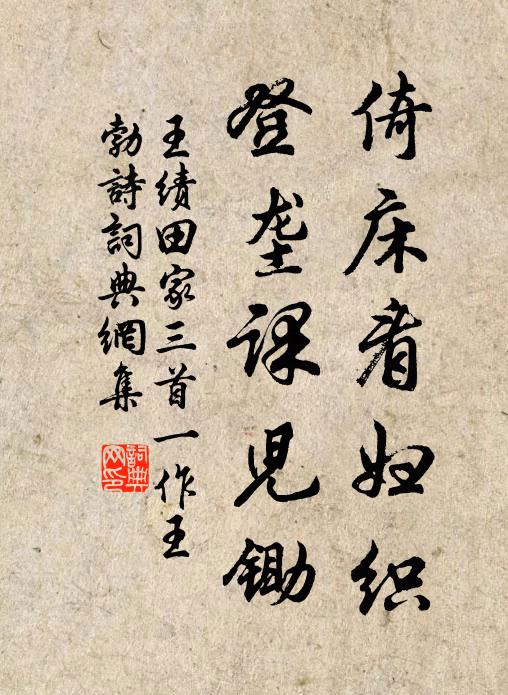 倚床看妇织
登垄课儿锄
王绩田家三首一作王
勃詩詞典網集
詞典网印